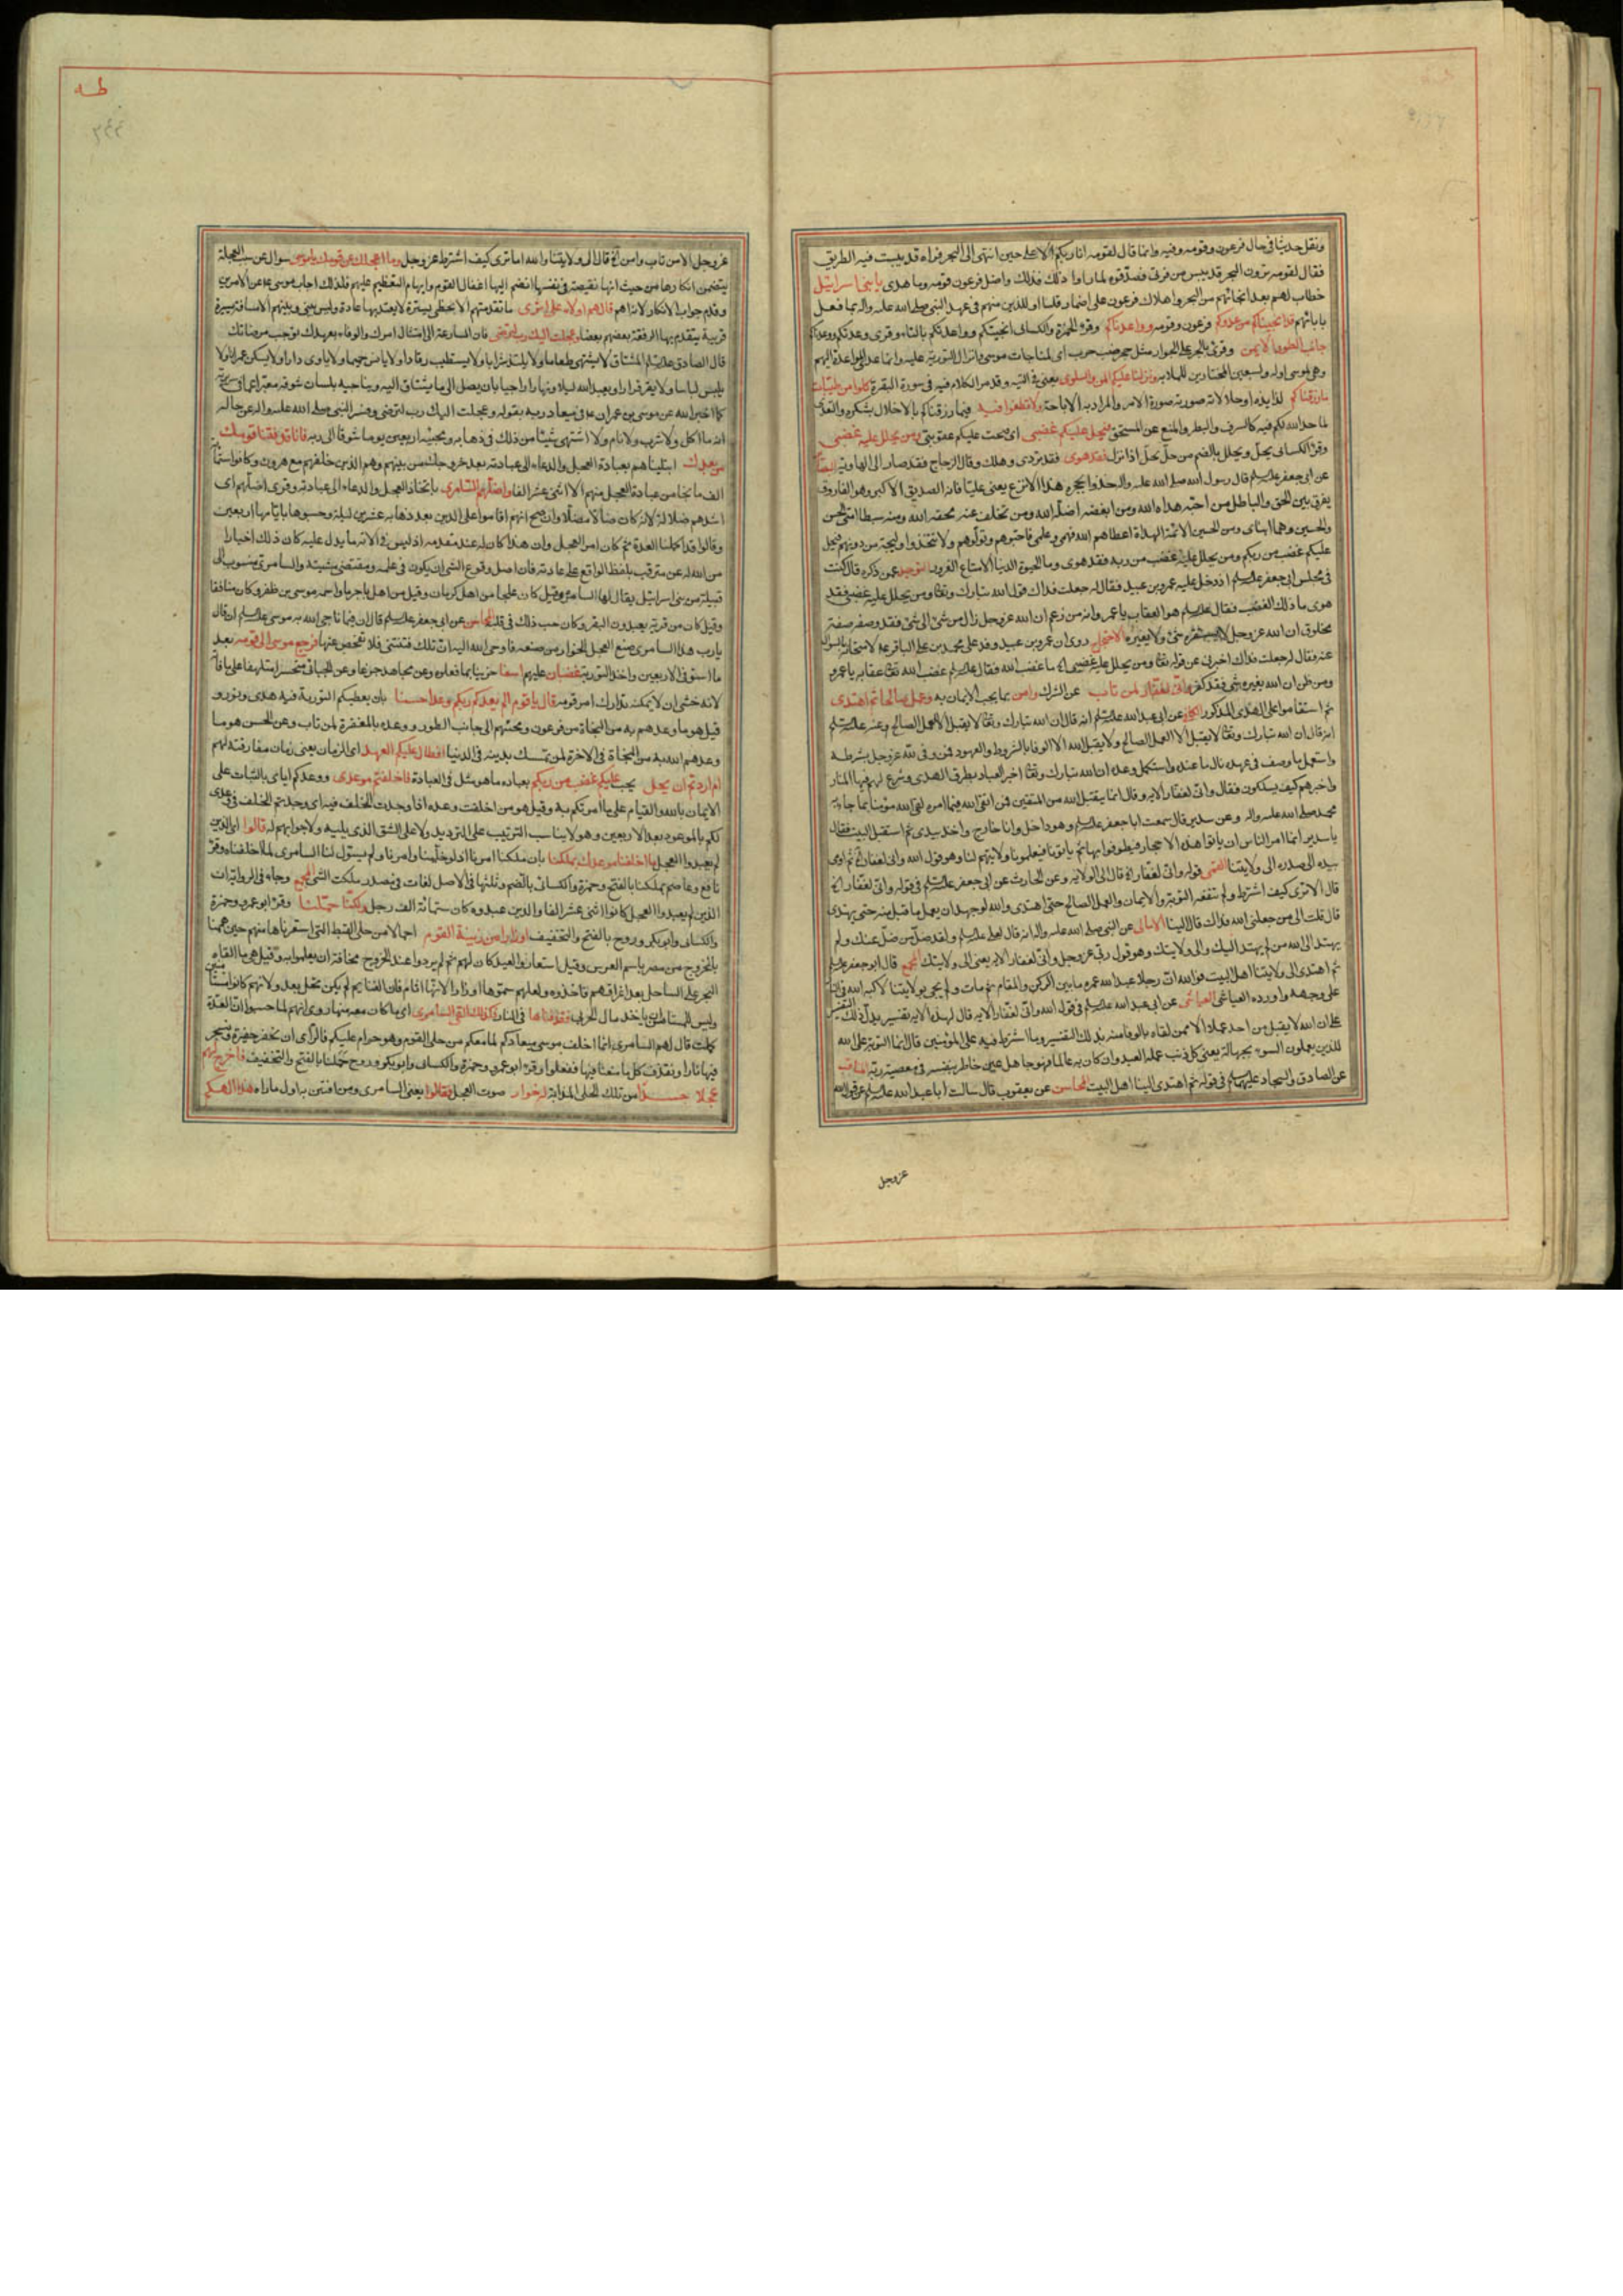 ونقل حديثا في حال فرعون وقومه وفيه وانما قال لقومه انا ربكم الاعلى حين انتهى الى البحر فراه قد يبست فيه الطريق
فقال لقومه ترون البحر قد يبس من فرقي فصدقوه لما راوا ذلك فذلك واضل فرعون قومه وما هدى يا بني اسرائيل
خطاب لهم بعد انجائهم من البحر واهلاك فرعون على اضمار قلنا او للذين منهم في عهد النبي صلى الله عليه واله بما فعل
بابائهم قد انجيناكم من عدوكم فرعون وقومه وواعدناكم وقرء الحمزة والكسائي انجيتكم وواعدتكم بالتاء وقرى وعدتكم ووعدناكم
جانب الطور الايمن وقرئ بالجر على الجوار مثل جحر ضب خرب اى لمناجات موسى وانزال التورية عليه وانما عد المواعدة اليهم
وهي لموسى اوله والسبعين المختارين للملابسة ونزلنا عليكم المن والسلوى يعني في التيه وقد مر الكلام فيه في سورة البقرة كلوا من طيبات
ما رزقناكم لذايذه او حلالاته صورته صورة الامر والمراد به الاباحة ولا تطغوا فيه فيما رزقناكم بالاخلال بشكره والتعدى
لما حد الله لكم فيه كالسرف والبطر والمنع عن المستحق فيحل عليكم غضبي اى وجبت عليكم عقوبتي ومن يحلل عليه غضبي
وقرء الكسائي يحل ويحلل بالضم من حل يحل اذا نزل فقد هوى فقد تردى وهلك وقال الزجاج فقد صار الى الهاوية
عن ابي جعفر عليه السلم قال رسول الله صلى الله عليه واله خذوا بحجزة هذا الانزع يعني عليا فانه الصديق الاكبر وهو الفاروق
يفرق بين الحق والباطل من احبه هداه الله ومن ابغضه اضله الله ومن تخلف عنه محقه الله ومنه سبطا امتي الحسن
والحسين وهما ابناى ومن الحسين الائمة الهداة اعطاهم الله فهمي وعلمي فاحبوهم وتولوهم ولا تتخذوا وليجة من دونهم فيحل
عليكم غضب من ربكم ومن يحلل عليه غضب من ربه فقد هوى وما الحيوة الدنيا الا متاع الغرور التوحيد عمن ذكره قال كنت
في مجلس ابي جعفر عليه السلم اذ دخل عليه عمرو بن عبيد فقال له جعلت فداك قول الله تبارك وتعالى ومن يحلل عليه غضبي فقد
هوى ما ذلك الغضب فقال عليه السلم هو العقاب يا عمرو انه من زعم ان الله عز وجل زال من شئ الى شئ فقد وصفه صفة
مخلوق ان الله عز وجل لا يستفزه شئ ولا يغيره الاحتجاج روى ان عمرو بن عبيد وفد على محمد بن علي الباقر عليه لامتحانه بالسوال
عنه فقال له جعلت فداك اخبرني عن قوله تعالى ومن يحلل عليه غضبي ما غضب الله فقال عليه السلم غضب الله تعالى عقابه يا عمرو
ومن ظن ان الله يغيره شئ فقد كفر واني لغفار لمن تاب عن الشرك وامن بما يجب الايمان به وعمل صالحا ثم اهتدى
ثم استقاموا على الهدى المذكور الكافي عن ابي عبد الله عليه السلم انه قال ان الله تبارك وتعالى لا يقبل الا العمل الصالح وعنه عليه السلم
انه قال ان الله تبارك وتعالى لا يقبل الا العمل الصالح ولا يقبل الله الا الوفا بالشروط والعهود فمن وفى لله عز وجل بشرطه
واستعمل ما وصف في عهده نال ما عنده واستكمل وعده ان الله تبارك وتعالى اخبر العباد بطرق الهدى وشرع لهم فيها المنار
واخبرهم كيف يسلكون فقال واني لغفار الاية وقال انما يتقبل الله من المتقين فمن اتقى الله فيما امره لقى الله مؤمنا بما جاء به
محمد صلى الله عليه واله وعن سدير قال سمعت ابا جعفر عليه السلم وهو داخل وانا خارج واخذ بيدى ثم استقبل البيت فقال
يا سدير انما امر الناس ان ياتوا هذه الاحجار فيطوفوا بها ثم ياتونا فيعلمونا ولايتهم لنا وهو قول الله واني لغفار ثم اومى
بيده الى صدره الى ولايتنا القمي قوله واني لغفار قال الى الولاية وعن الحارث عن ابي جعفر عليه السلم في قوله واني لغفار
قال الا ترى كيف اشترط ولم تنفعه التوبة والايمان والعمل الصالح حتى اهتدى والله لو جهد ان يعمل ما قبل منه حتى يهتدى
قال قلت الى من جعلني الله فداك قال الينا الامالي عن النبي صلى الله عليه واله انه قال لعلي عليه السلم ولقد ضل من ضل عنك ولم
يهتد الى الله من لم يهتد اليك والى ولايتك وهو قول ربي عز وجل واني لغفار الاية يعني الى ولايتك المجمع قال ابو جعفر عليه السلم
ثم اهتدى الى ولايتنا اهل البيت فوالله ان رجلا عبد الله عمره ما بين الركن والمقام ثم مات ولم يجى بولايتنا لاكبه الله في النار
على وجهه واورده العياشي العياشي عن ابي عبد الله عليه السلم في قول الله واني لغفار الاية قال لهذه الاية تفسير يدل ذلك التفسير
على ان الله لا يقبل من احد عملا الا ممن لقاه بالوفا منه بذلك التفسير وما اشترط فيه على المؤمنين قال انما التوبة على الله
للذين يعملون السوء بجهالة يعني كل ذنب عمله العبد وان كان به عالما فهو جاهل حين خاطر بنفسه في معصية ربه المناقب
عن الصادق والسجاد عليهما السلم في قوله ثم اهتدى الينا اهل البيت المحاسن عن يعقوب قال سالت ابا عبد الله عليه السلم عن قول الله
عز وجل
طه
عز وجل الا من تاب وامن قال الى ولايتنا والله اما ترى كيف اشترط عز وجل وما اعجلك عن قومك يا موسى سوال عن سبب العجلة
يتضمن انكارها من حيث انها نقيصة في نفسها انضم اليها اغفال القوم وايهام التعظيم عليهم فلذلك اجاب موسى عن الامرين
وقدم جواب الانكار لانه اهم قال هم اولاء على اثرى ما تقدمتهم الا بخطى يسيرة لا يعتد بها عادة وليس بيني وبينهم الا مسافة يسيرة
قريبة يتقدم بها الرفقة بعضهم بعضا وعجلت اليك رب لترضى فان المسارعة الى امتثال امرك والوفاء بعهدك توجب مرضاتك
قال الصادق عليه السلم المشتاق لا يشتهي طعاما ولا يلتذ شرابا ولا يستطيب رقادا ولا يانس حميما ولا ياوى دارا ولا يسكن عمرانا ولا
يلبس لباسا ولا يقر قرارا ويعبد الله ليلا ونهارا راجيا بان يصل الى ما يشتاق اليه ويناجيه بلسان شوقه معبرا عما في سريرته
كما اخبر الله عن موسى بن عمران في ميعاد ربه بقوله وعجلت اليك رب لترضى وفسر النبي صلى الله عليه واله عن حاله
انه ما اكل ولا شرب ولا نام ولا اشتهى شيئا من ذلك في ذهابه ومجيئه اربعين يوما شوقا الى ربه قال فانا قد فتنا قومك
من بعدك ابتليناهم بعبادة العجل والدعاء الى عبادته بعد خروجك من بينهم وهم الذين خلفهم مع هرون وكانوا ستمائة
الف ما نجا من عبادة العجل منهم الا اثنى عشر الفا واضلهم السامرى باتخاذ العجل والدعاء الى عبادته وقرى اضلهم اى
اشدهم ضلالة لانه كان ضالا مضلا وان صح انهم اقاموا على الدين بعد ذهابه عشرين ليلة وحسبوها بايامها اربعين
وقالوا قد اكملنا العدة ثم كان امر العجل وان هذا كان له عند مقدمه اذ ليس في الاية ما يدل عليه كان ذلك اخبارا
من الله له عن مترقب بلفظ الواقع على عادته فان اصل وقوع الشئ ان يكون في علمه ومقتضى مشيته والسامرى منسوب الى
قبيلة من بني اسرائيل يقال لها السامرة وقيل كان علجا من اهل كرمان وقيل من اهل باجرما واسمه موسى بن ظفر وكان منافقا
وقيل كان من قرية يعبدون البقر وكان حب ذلك في قلبه المحاسن عن ابي جعفر عليه السلم قال ان فيما ناجى الله به موسى عليه السلم ان قال
يا رب هذا السامرى صنع العجل الخوار من صنعه فاوحى الله اليه ان تلك فتنتي فلا تفحص عنها فرجع موسى الى قومه بعد
ما استوفى الاربعين واخذ التورية غضبان عليهم اسفا حزينا بما فعلوه وعن مجاهد جزعا وعن الجبائي متحسرا متلهفا على ما فاته
لانه خشى ان لا يمكنه تدارك امر قومه قال يا قوم الم يعدكم ربكم وعدا حسنا بان يعطيكم التورية فيه هدى ونور و
قيل هو ما وعدهم به من النجاة من فرعون ومجيئهم الى جانب الطور ووعده بالمغفرة لمن تاب وعن الحسن هو ما
وعدهم الله به من النجاة في الاخرة لمن تمسك بدينه في الدنيا افطال عليكم العهد اى الزمان يعني زمان مفارقته لهم
ام اردتم ان يحل يجب عليكم غضب من ربكم بعباده ما هو مثل في الغباوة فاخلفتم موعدى ووعدكم اياى بالثبات على
الايمان بالله والقيام على ما امرتكم به وقيل هو من اخلفت وعده اذا وجدت الخلف فيه اى وجدتم الخلف في وعدى
لكم بالموعود بعد الاربعين وهو لا يناسب الترتيب على الترديد ولا على الشق الذى يليه ولا جوابهم له قالوا اى الذين
لم يعبدوا العجل ما اخلفنا موعدك بملكنا بان ملكنا امرنا اذ لو خلينا وامرنا ولم يسول لنا السامرى لما اخلفناه وقرء
نافع وعاصم بملكنا بالفتح وحمزة والكسائي بالضم وثلثها في الاصل لغات في مصدر ملكت الشئ المجمع وجاء في الروايات ان
الذين لم يعبدوا العجل كانوا اثنى عشر الفا والذين عبدوه كان ستمائة الف رجل ولكنا حملنا وقرء ابو عمرو وحمزة
والكسائي وابو بكر وروح بالفتح والتخفيف اوزارا من زينة القوم احمالا من حلى القبط التي استعرناها منهم حين هممنا
بالخروج من مصر باسم العرس وقيل استعاروا لعيد كان لهم ثم لم يردوا عند الخروج مخافة ان يعلموا به وقيل هي ما القاه
البحر على الساحل بعد اغراقهم فاخذوه ولعلهم سموها اوزارا لانها اثام فان الغنايم لم تكن تحل بعد ولانهم كانوا مستامنين
وليس للمستامن ان ياخذ مال الحربي فقذفناها في النار فكذلك القى السامرى اى ما كان معه منها روى انهم لما حسبوا ان العدة
كملت قال لهم السامرى انما اخلف موسى ميعادكم لما معكم من حلى القوم وهو حرام عليكم فالراى ان نحفر حفيرة ونسجر
فيها نارا ونقذف كل ما معنا فيها ففعلوا وقرء ابو عمرو وحمزة والكسائي وابو بكر وروح حملنا بالفتح والتخفيف فاخرج لهم
عجلا جسدا من تلك الحلى المذابة له خوار صوت العجل فقالوا يعني السامرى ومن افتتن به اول ما راه هذا الهكم